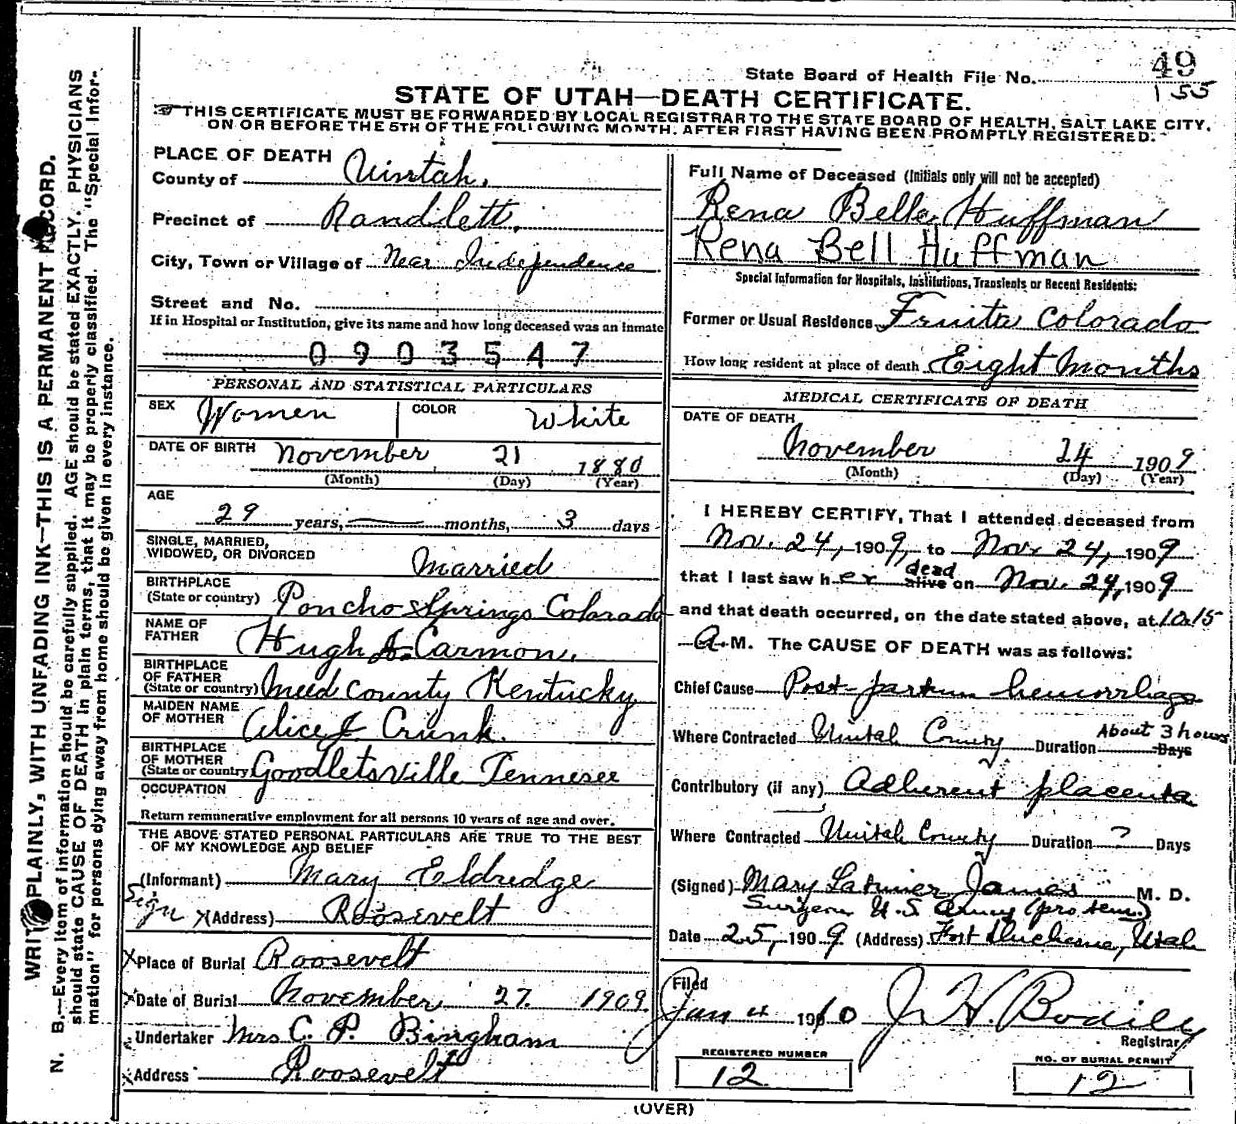 49
State Board of Health File No. 155
STATE OF UTAH—DEATH CERTIFICATE.
THIS CERTIFICATE MUST BE FORWARDED BY LOCAL REGISTRAR TO THE STATE BOARD OF HEALTH, SALT LAKE CITY,
ON OR BEFORE THE 5TH OF THE FOLLOWING MONTH, AFTER FIRST HAVING BEEN PROMPTLY REGISTERED.
PLACE OF DEATH
County of Uintah.
Precinct of Randlett.
City, Town or Village of Near Independence
Street and No.
If in Hospital or Institution, give its name and how long deceased was an inmate
0903547
PERSONAL AND STATISTICAL PARTICULARS
SEX Women COLOR White
DATE OF BIRTH November 21 1880
(Month) (Day) (Year)
AGE
29 years, — months, 3 days
SINGLE, MARRIED,
WIDOWED, OR DIVORCED Married
BIRTHPLACE
(State or country) Poncho Springs Colorado
NAME OF
FATHER Hugh J. Carmon.
BIRTHPLACE
OF FATHER
(State or country) Meed County Kentucky
MAIDEN NAME
OF MOTHER Alice J Crunk.
BIRTHPLACE
OF MOTHER
(State or country) Goodletsville Tennesee
OCCUPATION
Return remunerative employment for all persons 10 years of age and over.
THE ABOVE STATED PERSONAL PARTICULARS ARE TRUE TO THE BEST
OF MY KNOWLEDGE AND BELIEF
(Informant) Mary Eldredge
Sign X(Address) Roosevelt
X Place of Burial Roosevelt
X Date of Burial November 27 1909
Undertaker Mrs C. P. Bingham
X Address Roosevelt
Full Name of Deceased (Initials only will not be accepted)
Rena Belle Huffman
Rena Bell Huffman
Special Information for Hospitals, Institutions, Transients or Recent Residents:
Former or Usual Residence Fruita Colorado
How long resident at place of death Eight Months
MEDICAL CERTIFICATE OF DEATH
DATE OF DEATH
November 24 1909
(Month) (Day) (Year)
I HEREBY CERTIFY, That I attended deceased from
Nov. 24, 1909, to Nov. 24, 1909
that I last saw her alive dead on Nov. 24, 1909
and that death occurred, on the date stated above, at 10.15
A. M. The CAUSE OF DEATH was as follows:
Chief Cause Post-partum hemorrhage
Where Contracted Uintah County Duration About 3 hours Days
Contributory (if any) Adherent placenta
Where Contracted Uintah County Duration ? Days
(Signed) Mary Latimer James M. D.
Surgeon U.S. Army (pro tem.)
Date 25, 1909 (Address) Fort Duchesne, Utah
Filed
Jan 4 1910 J. H. Bodily
Registrar
REGISTERED NUMBER
12
NO. OF BURIAL PERMIT
12
(OVER)
WRITE PLAINLY, WITH UNFADING INK—THIS IS A PERMANENT RECORD.
N. B.—Every item of information should be carefully supplied. AGE should be stated EXACTLY. PHYSICIANS
should state CAUSE OF DEATH in plain terms, that it may be properly classified. The "Special Infor-
mation" for persons dying away from home should be given in every instance.